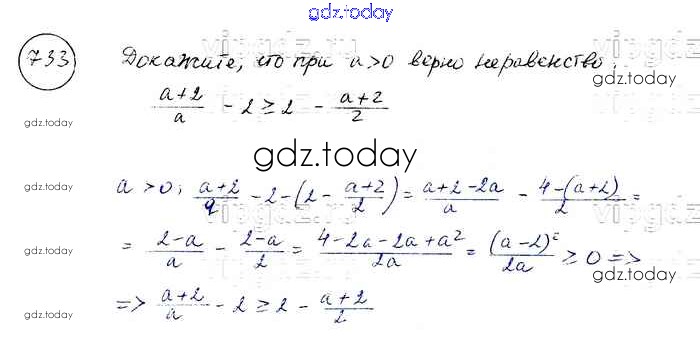 gdz.today
733 Докажите, что при a>0 верно неравенство:
(a+2)/a - 2 ≥ 2 - (a+2)/2
gdz.today
gdz.today
a > 0; (a+2)/a - 2 - (2 - (a+2)/2) = (a+2-2a)/a - (4-(a+2))/2 =
gdz.today
= (2-a)/a - (2-a)/2 = (4-2a-2a+a²)/2a = (a-2)²/2a ≥ 0 =>
gdz.today
gdz.today
=> (a+2)/a - 2 ≥ 2 - (a+2)/2
gdz.today